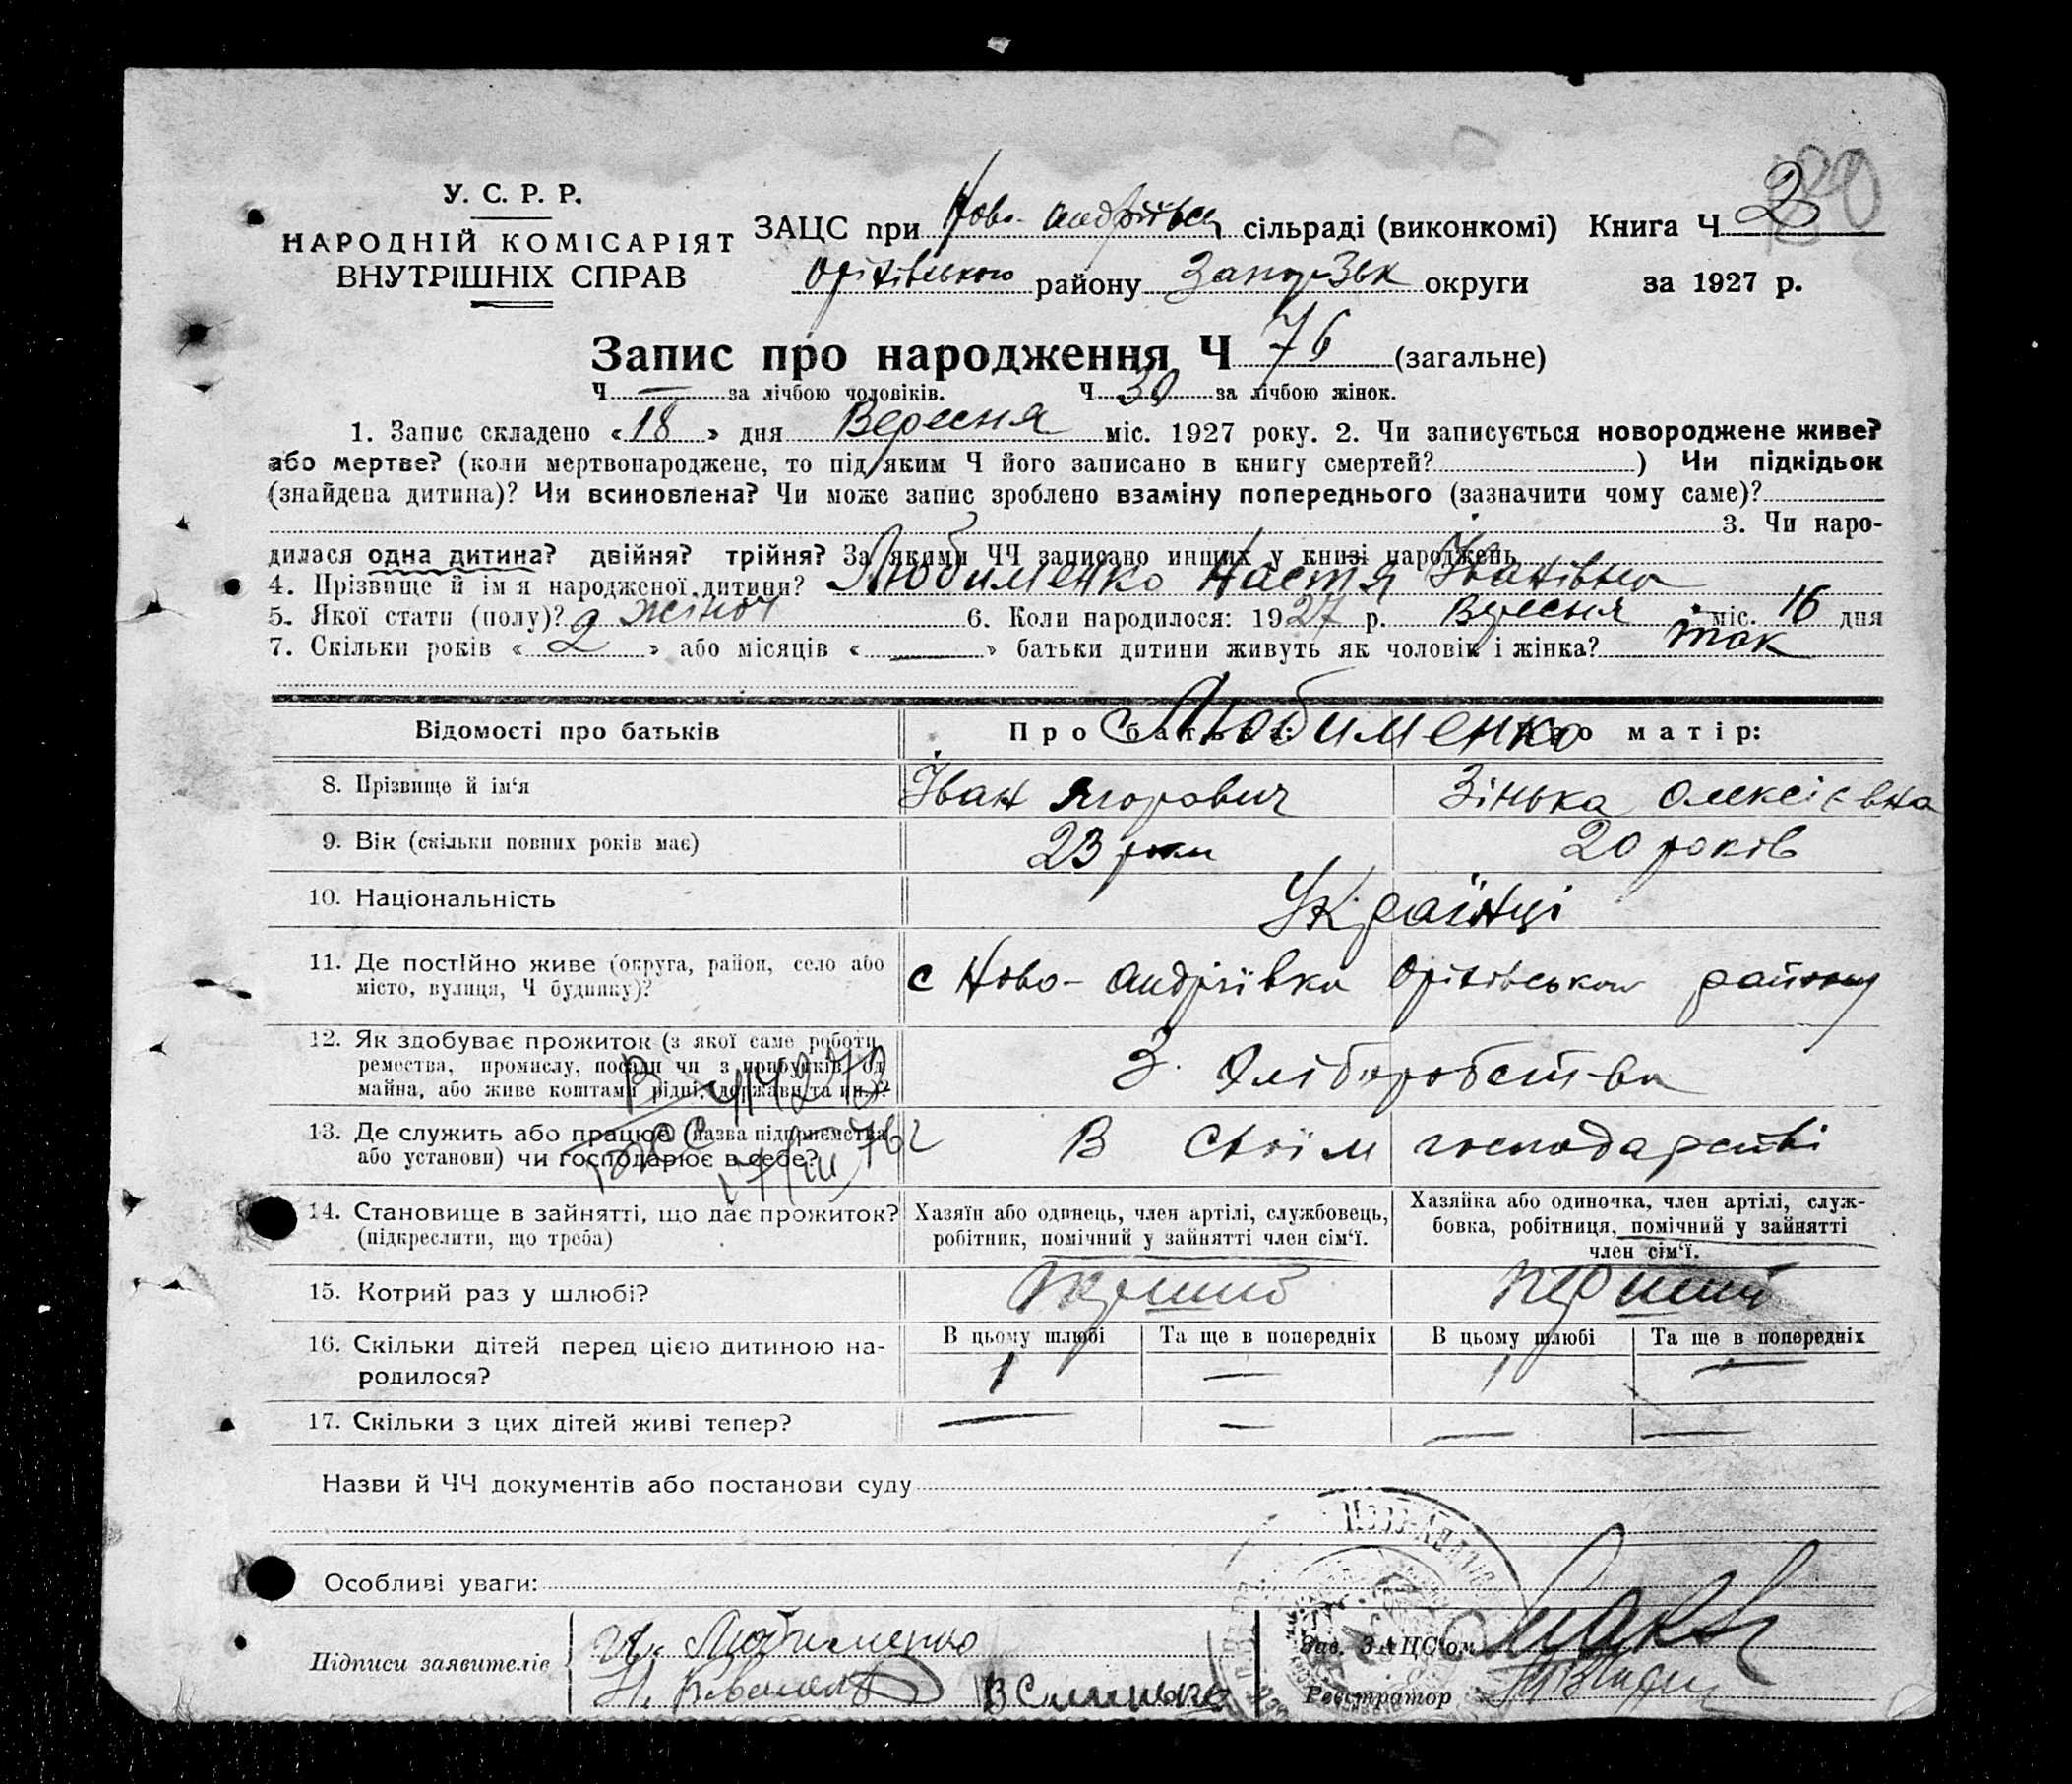 У. С. Р. Р.
НАРОДНІЙ КОМІСАРІЯТ
ВНУТРІШНІХ СПРАВ
ЗАЦС при Ново-Андріївц сільраді (виконкомі) Книга Ч 2
Оріхівського району Запорізьк округи за 1927 р.
Запис про народження Ч 76 (загальне)
Ч — за лічбою чоловіків. Ч 30 за лічбою жінок.
1. Запис складено «18» дня Вересня міс. 1927 року. 2. Чи записується новороджене живе?
або мертве? (коли мертвонароджене, то під яким Ч його записано в книгу смертей? ) Чи підкідьок
(знайдена дитина)? Чи всиновлена? Чи може запис зроблено взаміну попереднього (зазначити чому саме)?
3. Чи наро-
дилася одна дитина? двійня? трійня? За якими ЧЧ записано инших у книзі народжень
4. Прізвище й ім'я народженої дитини? Любименко Настя Іванівна
5. Якої стати (полу)? жіноч 6. Коли народилося: 1927 р. Вересня міс. 16 дня
7. Скільки років «2» або місяців «—» батьки дитини живуть як чоловік і жінка? так
Відомості про батьків Про батька: Про матір:
Любименко
8. Прізвище й ім'я Іван Ягорович Зінька Олексієвна
9. Вік (скільки повних років має) 23 роки 20 років
10. Національність Українці
11. Де постійно живе (округа, район, село або
місто, вулиця, Ч будинку)? с Ново-Андріївка Оріхівського району
12. Як здобуває прожиток (з якої саме роботи,
ремества, промислу, посади чи з прибутків од
майна, або живе коштами рідні, держави та ин.)? З хліборобства
13. Де служить або працює (назва підприємства
або установи) чи господарює в себе? В своїм господарстві
14. Становище в зайнятті, що дає прожиток?
(підкреслити, що треба)
Хазяїн або одинець, член артілі, службовець,
робітник, помічний у зайнятті член сім'ї.
Хазяйка або одиночка, член артілі, служ-
бовка, робітниця, помічний у зайнятті
член сім'ї.
15. Котрий раз у шлюбі? перший перший
16. Скільки дітей перед цією дитиною на-
родилося?
В цьому шлюбі Та ще в попередніх В цьому шлюбі Та ще в попередніх
1 — 1 —
17. Скільки з цих дітей живі тепер? — — — —
Назви й ЧЧ документів або постанови суду
Особливі уваги:
Підписи заявителів Любименко
Зав. ЗАЦС'ом
Реєстратор